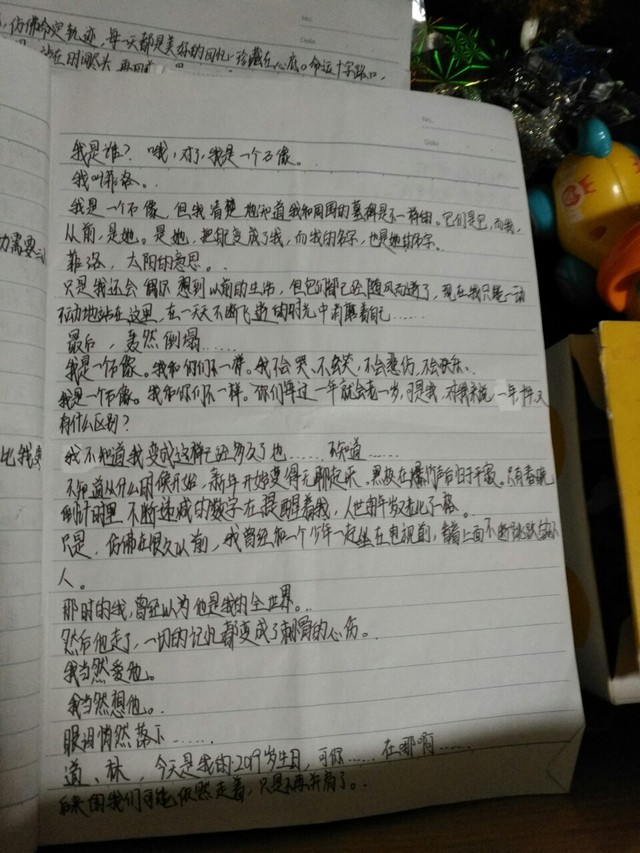 仿佛命定轨迹，每一天都是美好的回忆，珍藏在心底。命运十字路口，
在时间尽头
No.
Date
No.
Date
我是谁？哦，对了，我是一个石像。
我叫菲洛。
我是一个石像，但我清楚地知道我和周围的墓碑是不一样的。它们是它，而我，
从前，是她。是她，把她变成了我，而我的名字，也是她的名字。
菲洛，太阳的意思。
只是我还会偶尔想到以前的生活，但它们都已经随风而逝了，现在我只是一动
不动地站在这里，在一天天不断飞逝的时光中消磨着自己……
最后，轰然倒塌……
我是一个石像。我和你们不一样。我不会哭，不会笑，不会悲伤，不会快乐。
我是一个石像。我和你们不一样。你们每过一年就会老一岁，可是我，对我来说，一年
有什么区别？
我不知道我变成这样已经多久了也……不知道……
不知道从什么时候开始，新年开始变得无聊起来。黑夜在爆竹声后归于平寂。只有春晚
倒计时里不断递减的数字在提醒着我，人世间年岁又老化了一番。
只是，仿佛在很久以前，我曾经和一个少年一起坐在电视前，看着上面不断跳跃的
人。
那时的我，曾经以为他是我的全世界。
然后他走了，一切的记忆都变成了刺骨的心伤。
我当然爱他。
我当然想他。
眼泪悄然落下……
道林，今天是我的2019岁生日，可你……在哪啊……
后来的我们可能依然走着，只是不再并肩了。
力需要
比我